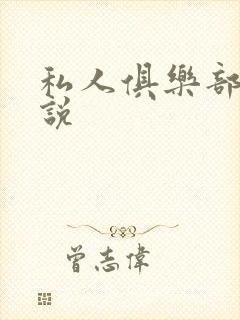 私人俱樂部
說
曾志偉